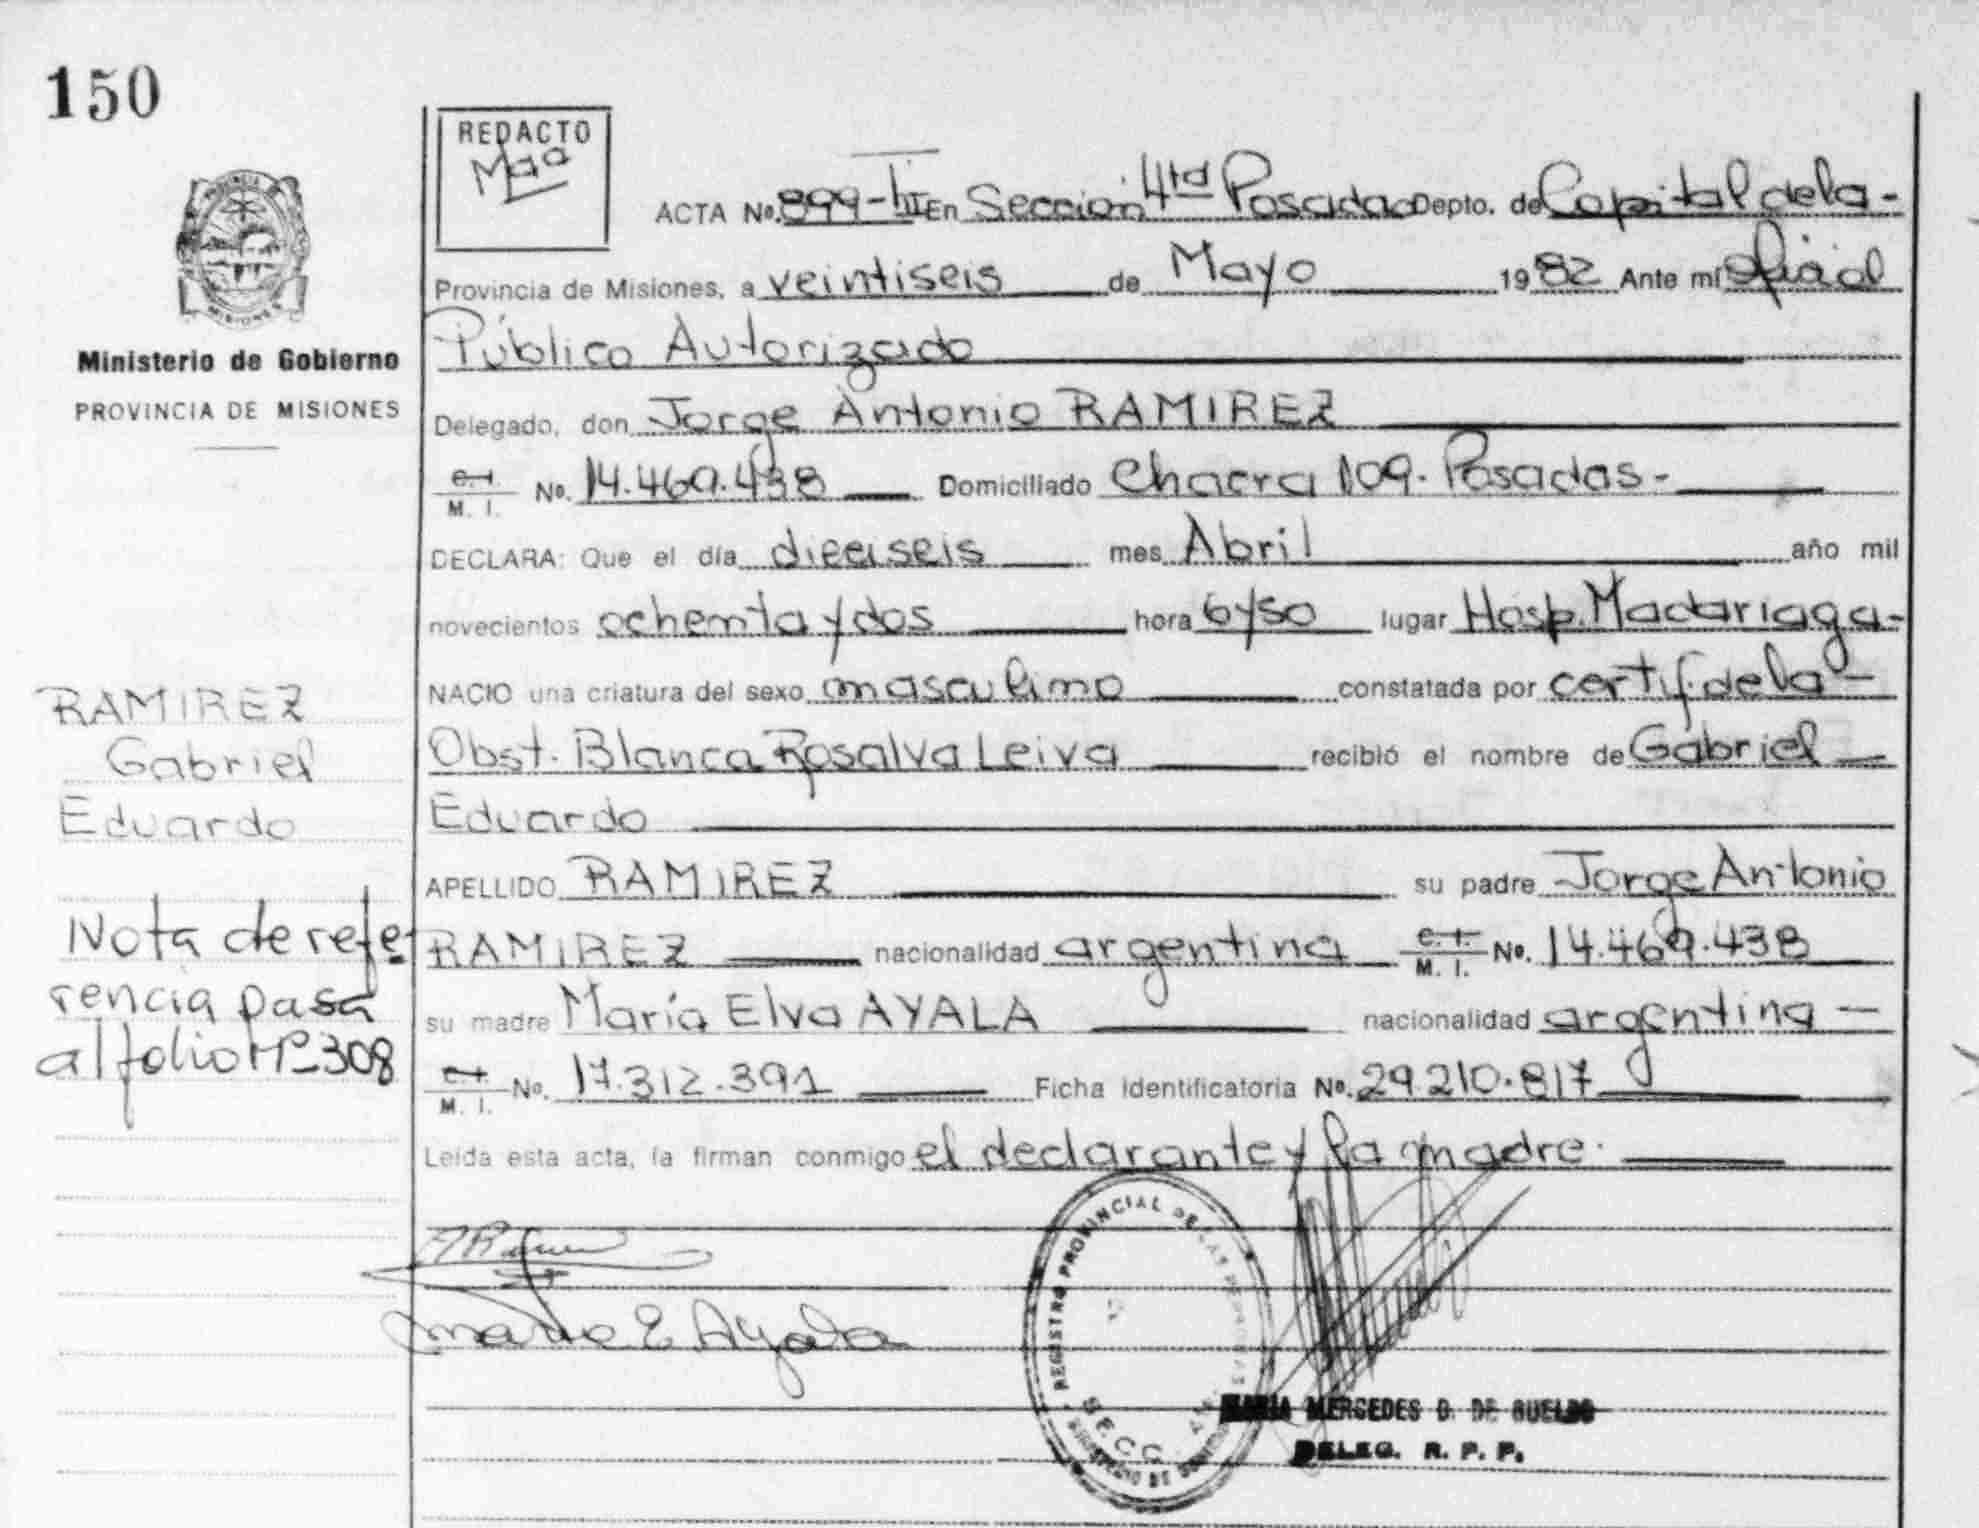 150
REDACTO
Mga
ACTA Nº. 899-III En Sección 4ta Posadas Depto. de Capital de la-
Provincia de Misiones, a veintiseis de Mayo 1982 Ante mí Oficial
Público Autorizado
Delegado, don Jorge Antonio RAMIREZ
C.I. M. I. Nº. 14.469.438 Domiciliado Chacra 109. Posadas-
DECLARA: Que el día dieciseis mes Abril año mil
novecientos ochenta y dos hora 6y50 lugar Hosp. Madariaga-
NACIO una criatura del sexo masculino constatada por certif. de la-
Obst. Blanca Rosalva Leiva recibió el nombre de Gabriel
Eduardo
APELLIDO RAMIREZ su padre Jorge Antonio
RAMIREZ nacionalidad argentina C.I. M. I. Nº. 14.469.438
su madre María Elva AYALA nacionalidad argentina-
C.I. M. I. Nº. 17.312.391 Ficha identificatoria Nº. 29.210.817
Leída esta acta, la firman conmigo el declarante y la madre.
Ministerio de Gobierno
PROVINCIA DE MISIONES
RAMIREZ
Gabriel
Eduardo
Nota de refe-
rencia pasa
al folio Nº 308
Maria E Ayala
REGISTRO PROVINCIAL DE LAS PERSONAS
SECC
MARIA MERCEDES G. DE SUELDO
DELEG. R. P. P.